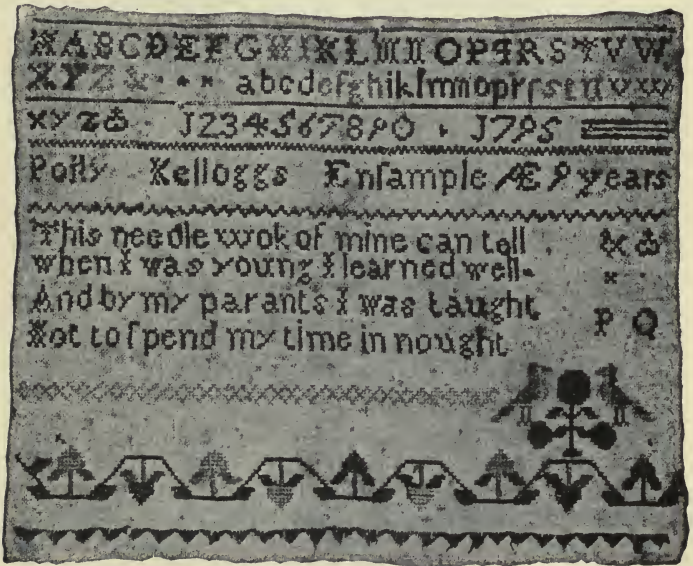 ABCDEFGHIKLMNOPQRSTVW
XYZ& abcdefghiklmnoprſstuvwx
xyz& 1234567890 1795
Polly Kelloggs Enſample Æ 9 years
This needle wok of mine can tell
when I was young I learned well
And by my parants I was taught
Not to ſpend my time in nought
P Q